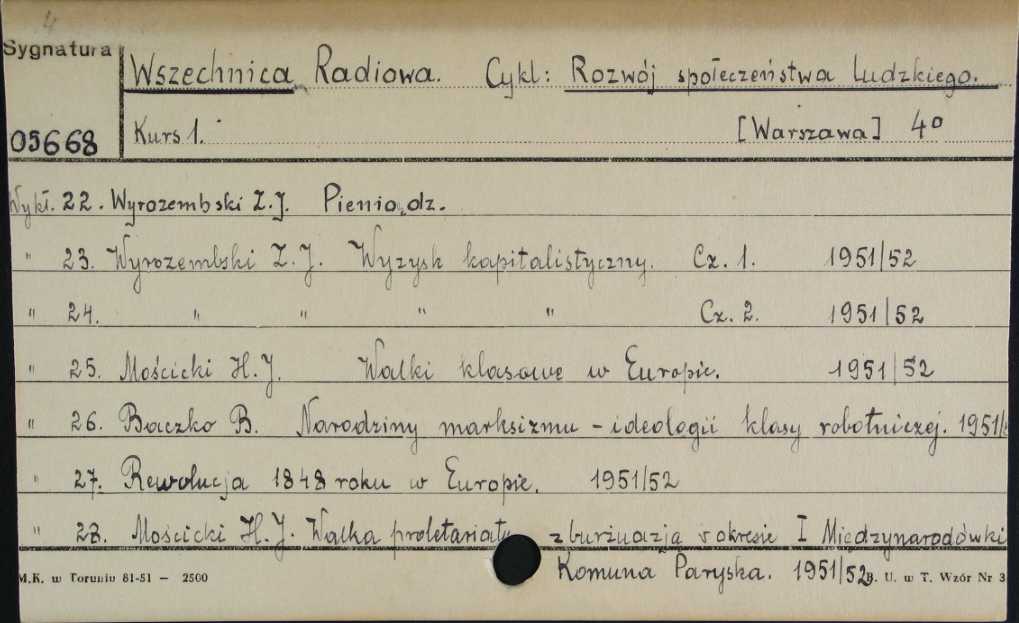 4
Sygnatura
Wszechnica Radiowa. Cykl: Rozwój społeczeństwa ludzkiego.
05668 Kurs 1. [Warszawa] 4°
Wykł. 22. Wyrozembski Z.J. Pieniądz.
" 23. Wyrozembski Z.J. Wyzysk kapitalistyczny. Cz. 1. 1951/52
" 24. " " " " Cz. 2. 1951/52
" 25. Mościcki H.J. Walki klasowe w Europie. 1951/52
" 26. Baczko B. Narodziny marksizmu - ideologii klasy robotniczej. 1951/
" 27. Rewolucja 1848 roku w Europie. 1951/52
" 28. Mościcki H.J. Walka proletariatu z burżuazją w okresie I Międzynarodówki
Komuna Paryska. 1951/52
M.K. w Toruniu 81-51 — 2500 B. U. w T. Wzór Nr 3